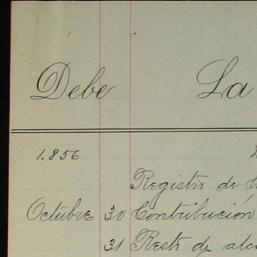 Debe La
1.856
Registro de
Octubre 30 Contribución
31 Resto de alc